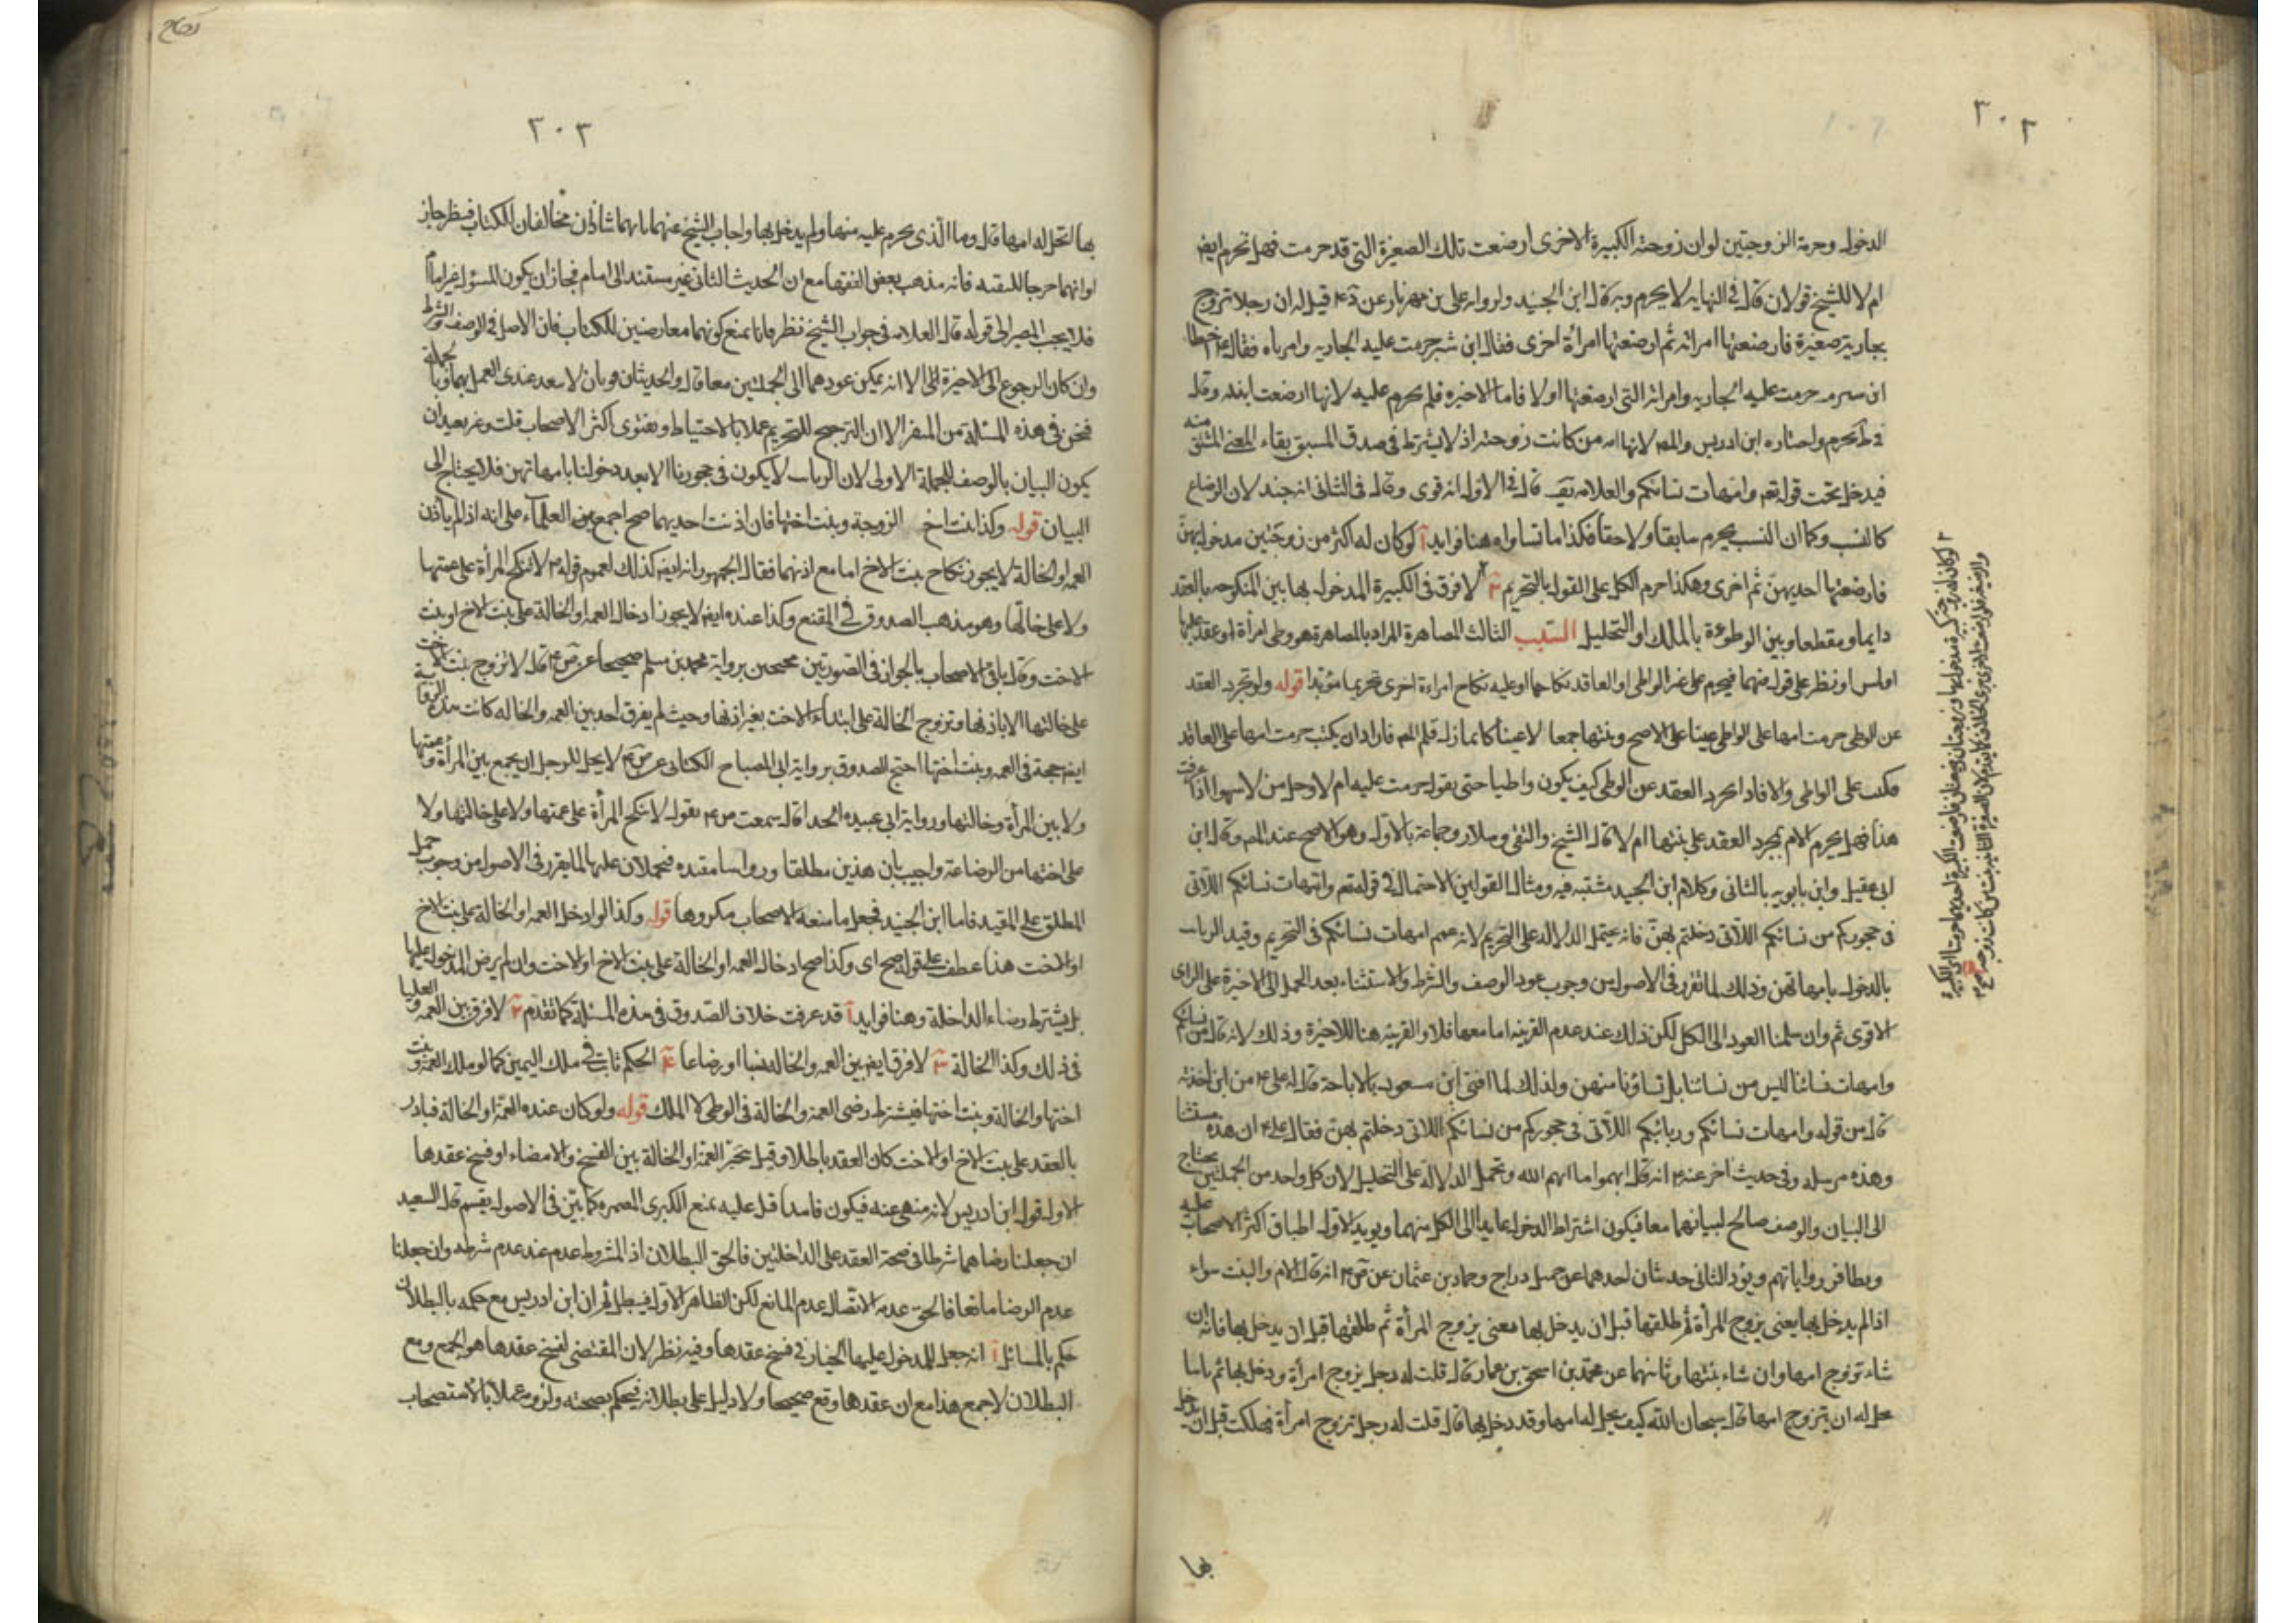 ٣٠٢
الدخول وحرمة الزوجتين لو ان زوجته الكبيرة الاخرى ارضعت تلك الصغيرة التى قد حرمت فهل تحرم ايضا
ام لا للشيخ قولان قال فى النهايه لا يحرم وبه قال ابن الجنيد ولروايه على بن مهزيار عن قيل له ان رجلا تزوج
بجارية صغيرة فارضعتها امراته ثم ارضعتها امراة اخرى فقال ابن شبرمه حرمت عليه الجاريه وامرتاه فقال اخطا
ابن شبرمه حرمت عليه الجاريه وامراته التى ارضعتها اولا فاما الاخيره فلم تحرم عليه لانها ارضعت ابنته وقال
فى ط تحرم واختاره ابن ادريس والمص لانها ام من كانت زوجته اذ لا يشترط فى صدق المشتق بقاء المعنى المشتق منه
فيدخل تحت قوله تعم وامهات نسائكم والعلامه قال فى الاول انه قوى وقال فى الثانى انه جيد لان الرضاع
كالنسب وكما ان النسب يحرم سابقا ولاحقا فكذا ما تساواه هنا فوايد آ لو كان له اكثر من زوجتين مدخول بهن
فارضعتها احديهن ثم اخرى وهكذا حرم الكل على القول بالتحريم لا فرق فى الكبيرة المدخول بها بين المنكوحه بالعقد
دايما ومنقطعا وبين الموطوءة بالملك او التحليل السبب الثالث المصاهرة المراد بالمصاهرة هو وطى امرأة او عقد عليها
او لمس او نظر على قول فيهما فيحرم على غير الواطى او العاقد نكاحها او عليه نكاح امراءة اخرى تحريما مؤبدا قوله ولو تجرد العقد
عن الوطى حرمت امها على الواطى عينا على الاصح وبنتها جمعا لا عينا كما زل قلم المص فاراد ان يكتب حرمت امها على العاقد
فكتب على الواطى والا فاذا تجرد العقد عن الوطى كيف يكون واطيا حتى يقول حرمت عليه ام لا وجل من لا يسهو اذا عرفت
هذا فهل يحرم الام بمجرد العقد على بنتها ام لا قال الشيخ والتقى وسلار وجماعة بالاول وهو الاصح عند المص وقال ابن
ابى عقيل وابن بابويه بالثانى وكلام ابن الجنيد مشتبه فيه ومثار القولين الاحتمال فى قوله تعم وامهات نسائكم اللاتى
فى حجوركم من نسائكم اللاتى دخلتم بهن فانه يحتمل الدلاله على التحريم لانه عمم امهات نسائكم فى التحريم وقيد الربائب
بالدخول بامهاتهن وذلك لما تقرر فى الاصول من وجوب عود الوصف والشرط والاستثناء بعد الجمل الى الاخيرة على الراى
الاقوى ثم وان سلمنا العود الى الكل لكن ذلك عند عدم القرينه اما معها فلا والقرينه هنا للاخيرة وذلك لانه قال من نسائكم
وامهات نسائنا ليس من نسائنا بل نساؤنا منهن ولذلك لما افتى ابن مسعود بالاباحة قال له على من اين اخذته
قال من قوله وامهات نسائكم وربائبكم اللاتى فى حجوركم من نسائكم اللاتى دخلتم بهن فقال على ان هذه مستثنا
وهذه مرسله وفى حديث اخر عنه انه قال ابهموا ما ابهم الله ويحتمل الدلالة على التحليل لان كل واحد من الجملتين يحتاج
الى البيان والوصف صالح لبيانهما معا فيكون اشتراط الدخول عايدا الى الكل منهما ويويد الاول اطباق اكثر الاصحاب عليه
وتظافر رواياتهم ويؤيد الثانى حديثان احدهما عن جميل دراج وحماد بن عثمان عن انه قال الام والبنت سواء
اذا لم يدخل بها يعنى يزوج المرأة ثم طلقها قبل ان يدخل بها معنى يزوج المرأة ثم طلقها قبل ان يدخل بها فانه ان
شاء تزوج امها وان شاء بنتها وثانيهما عن محمد بن اسحق بن عمار قال قلت له رجل يزوج امرأة ودخل بها ثم ماتت
يحل له ان يتزوج امها قال سبحان الله كيف يحل له امها وقد دخل بها قال قلت له رجل تزوج امرأة فهلكت قبل ان يدخل
بها
٣٠٣
بها اتحل له امها قال وما الذى يحرم عليه منها ولم يدخل بها واجاب الشيخ عنهما بانهما شاذان مخالفان للكتاب
او انهما خرجا للتقيه فانه مذهب بعض الفقها مع ان الحديث الثانى غير مستند الى امام فجاز ان يكون المسؤل غير امام
فلا يجب المصير الى قوله قال العلامه فى جواب الشيخ نظر فانا نمنع كونهما معارضين للكتاب فان الاصل فى الوصف والشرط
وان كان الرجوع الى الاخيرة الا انه يمكن عودهما الى الجملتين معا قال والحديثان قويان لا يبعد عندى العمل بهما وبالجملة
فنحن فى هذه المسئلة من الا ان الترجيح للتحريم عملا بالاحتياط وبفتوى اكثر الاصحاب قلت وغير بعيد ان
يكون البيان بالوصف للجملة الاولى لان الربائب لا يكون فى حجورنا الا بعد دخولنا بامهاتهن فلا يحتاج الى
البيان قوله وكذا بنت اخ الزوجة وبنت اختها فان اذنت احديهما صح اجمع العلماء على انه اذا لم ياذن
العمه او الخالة لا يجوز نكاح بنت الاخ اما مع اذنهما فقال الجمهور انه ايضا كذلك لعموم قوله لا تنكح المرأة على عمتها
ولا على خالتها وهو مذهب الصدوق فى المقنع وكذا عنده ايضا لا يجوز ادخال العمه او الخالة على بنت الاخ او بنت
الاخت وقال باقى الاصحاب بالجواز فى الصورتين محتجين برواية محمد بن مسلم صحيحا عن قال لا تزوج بنت الاخت
على خالتها الا باذنها وتزوج الخالة على ابنة الاخت بغير اذنها وحيث لم يفرق احد بين العمه والخاله كانت هذه الرواية
ايضا حجة فى العمه وبنت اختها احتج الصدوق برواية ابى الصباح الكنانى عن لا يحل للرجل ان يجمع بين المرأة وعمتها
ولا بين المرأة وخالتها ورواية ابى عبيده الحذا قال سمعت يقول لا تنكح المرأة على عمتها ولا على خالتها ولا
على اختها من الرضاعة واجيب بان هذين مطلقا ورواياتنا مقيده فيحملان عليها لما تقرر فى الاصول من وجوب حمل
المطلق على المقيد فاما ابن الجنيد فجعل ما منعه الاصحاب مكروها قوله وكذا لو ادخل العمه او الخالة على بنت الاخ
او الاخت هذا عطف على قوله صح اى وكذا صح ادخال العمه او الخالة على بنت الاخ او الاخت وان لم يرض المدخول عليها
بل يشترط رضاء الداخلة وهنا فوايد آ قد عرفت خلاف الصدوق فى هذه المسئلة كما تقدم لا فرق بين العمه العليا
فى ذلك وكذا الخالة لا فرق ايضا بين العمه والخاله نسبا او رضاعا الحكم ثابت فى ملك اليمين كما لو ملك العمة وبنت
اختها والخالة وبنت اختها فيشترط رضى العمة والخالة فى الوطى لا الملك قوله ولو كان عنده العمة او الخالة فبادر
بالعقد على بنت الاخ او الاخت كان العقد باطلا وقيل تخير العمة او الخالة بين الفسخ والامضاء او فسخ عقدها
الاول قول ابن ادريس لانه منهى عنه فيكون فاسدا قيل عليه نمنع الكبرى كما بين فى الاصول قال السعيد
ان جعلنا رضاهما شرطا فى صحة العقد على الداخلتين فالحق البطلان اذ المشروط عدم عند عدم شرطه وان جعلنا
عدم الرضا مانعا فالحق عدمه لكن الظاهر الاول فيبطل ثم ان ابن ادريس مع حكمه بالبطلان
حكم بالمسائل آ انه جعل للمدخول عليها الخيار فى فسخ عقدها وفيه نظر لان المقتضى لفسخ عقدها هو الجمع ومع
البطلان لا جمع هذا مع ان عقدها وقع صحيحا ولا دليل على بطلانه فيحكم بصحته ولزومه عملا بالاستصحاب